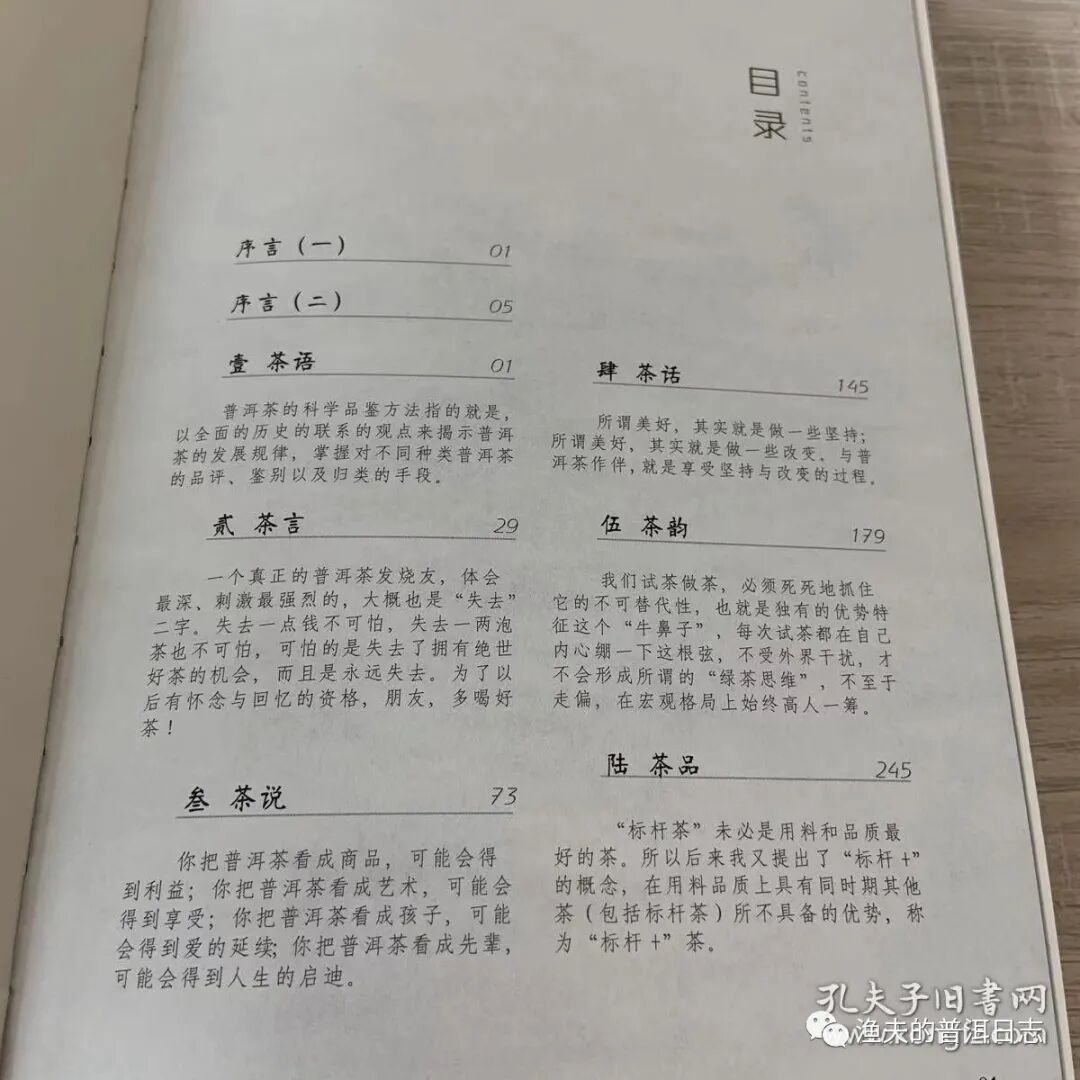 目录
contents
序言（一） 01
序言（二） 05
壹 茶语 01
普洱茶的科学品鉴方法指的就是，
以全面的历史的联系的观点来揭示普洱
茶的发展规律，掌握对不同种类普洱茶
的品评、鉴别以及归类的手段。
贰 茶言 29
一个真正的普洱茶发烧友，体会
最深、刺激最强烈的，大概也是“失去”
二字。失去一点钱不可怕，失去一两泡
茶也不可怕，可怕的是失去了拥有绝世
好茶的机会，而且是永远失去。为了以
后有怀念与回忆的资格，朋友，多喝好
茶！
叁 茶说 73
你把普洱茶看成商品，可能会得
到利益；你把普洱茶看成艺术，可能会
得到享受；你把普洱茶看成孩子，可能
会得到爱的延续；你把普洱茶看成先辈，
可能会得到人生的启迪。
肆 茶话 145
所谓美好，其实就是做一些坚持；
所谓美好，其实就是做一些改变。与普
洱茶作伴，就是享受坚持与改变的过程。
伍 茶韵 179
我们试茶做茶，必须死死地抓住
它的不可替代性，也就是独有的优势特
征这个“牛鼻子”，每次试茶都在自己
内心绷一下这根弦，不受外界干扰，才
不会形成所谓的“绿茶思维”，不至于
走偏，在宏观格局上始终高人一筹。
陆 茶品 245
“标杆茶”未必是用料和品质最
好的茶。所以后来我又提出了“标杆+”
的概念，在用料品质上具有同时期其他
茶（包括标杆茶）所不具备的优势，称
为“标杆+”茶。
孔夫子旧书网
渔夫的普洱日志